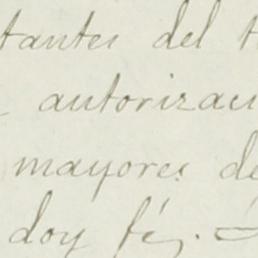 tantes del t
autorizaci
mayores de
doy fé,.